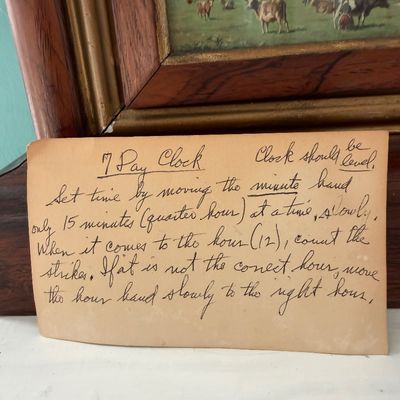 7 Day Clock Clock should be level.
Set time by moving the minute hand
only 15 minutes (quarter hour) at a time, slowly.
When it comes to the hour (12), count the
strikes. If it is not the correct hour, move
the hour hand slowly to the right hour.